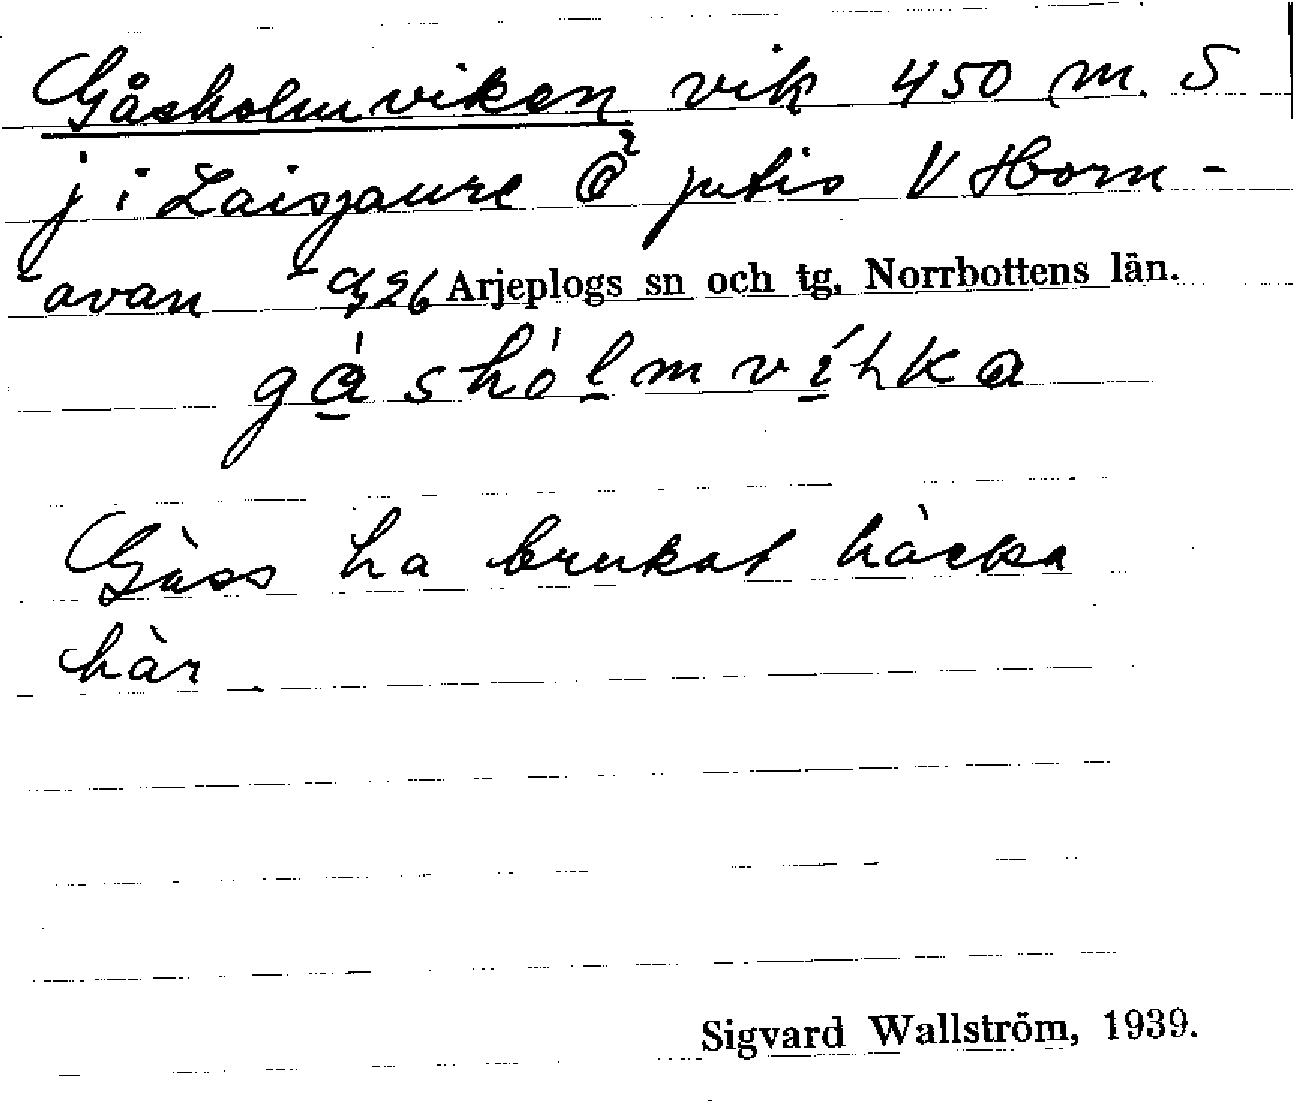 Gåsholmviken vik 450 m. S
j i Laisjaure @² jutis V Horn-
avan G26 Arjeplogs sn och tg, Norrbottens län.
gáshólmvíhka
Gäss ha brukat häcka
här.
Sigvard Wallström, 1939.